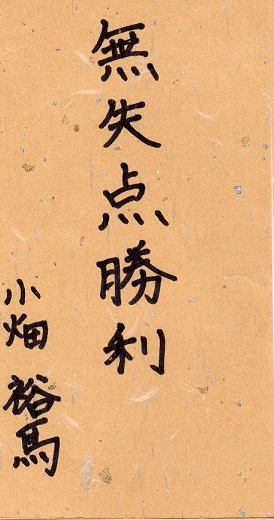 無失点勝利
小畑裕馬